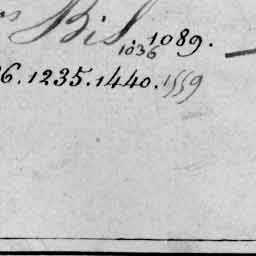 Bis 1036 1089.
6. 1235. 1440. 1559